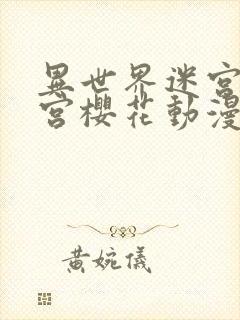 異世界迷宮
宮櫻花動漫
黃婉儀